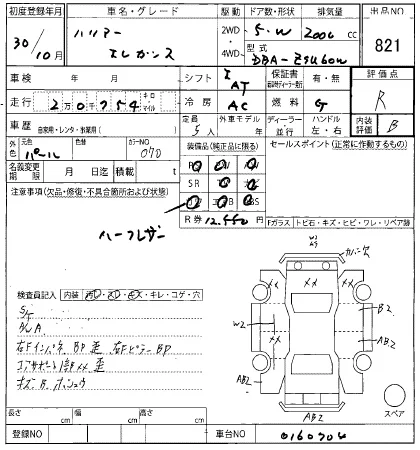 初度登録年月 車名・グレード 駆動 ドア数・形状 排気量 出品NO
30/10月 ハリアー エレガンス 2WD・4WD 5.W 2000 cc 821
型式 DBA-ZSU60W
車検 年 月 シフト IAT 保証書 有・無 評価点
走行 2万0千754 キロ マイル 冷房 AC 燃料 G R
車歴 自家用・レンタ・事業用( ) 定員 5人 外車モデル 年 ディーラー 並行 ハンドル 左・右 内装評価 B
外色 元色 パール 色替 カラーNO 070 装備品(純正品に限る) セールスポイント(正常に作動するもの)
名義変更期限 月 日迄 積載 t
SR
注意事項(欠品・修復・不具合箇所および状態)
R券 12,550 Fガラス トビ石・キズ・ヒビ・ワレ・リペア跡
ハーフレザー
カバー欠
検査員記入 内装 汚レ・スレ・キレ・コゲ・穴
XX XX XX
B2
W2
AB2
右Fインパネ BP 歪 右Fピラー BP
コアサポート部XX 歪
AB2
AB2
スペア
長さ cm 幅 cm 高さ cm
登録NO 車台NO 0160704